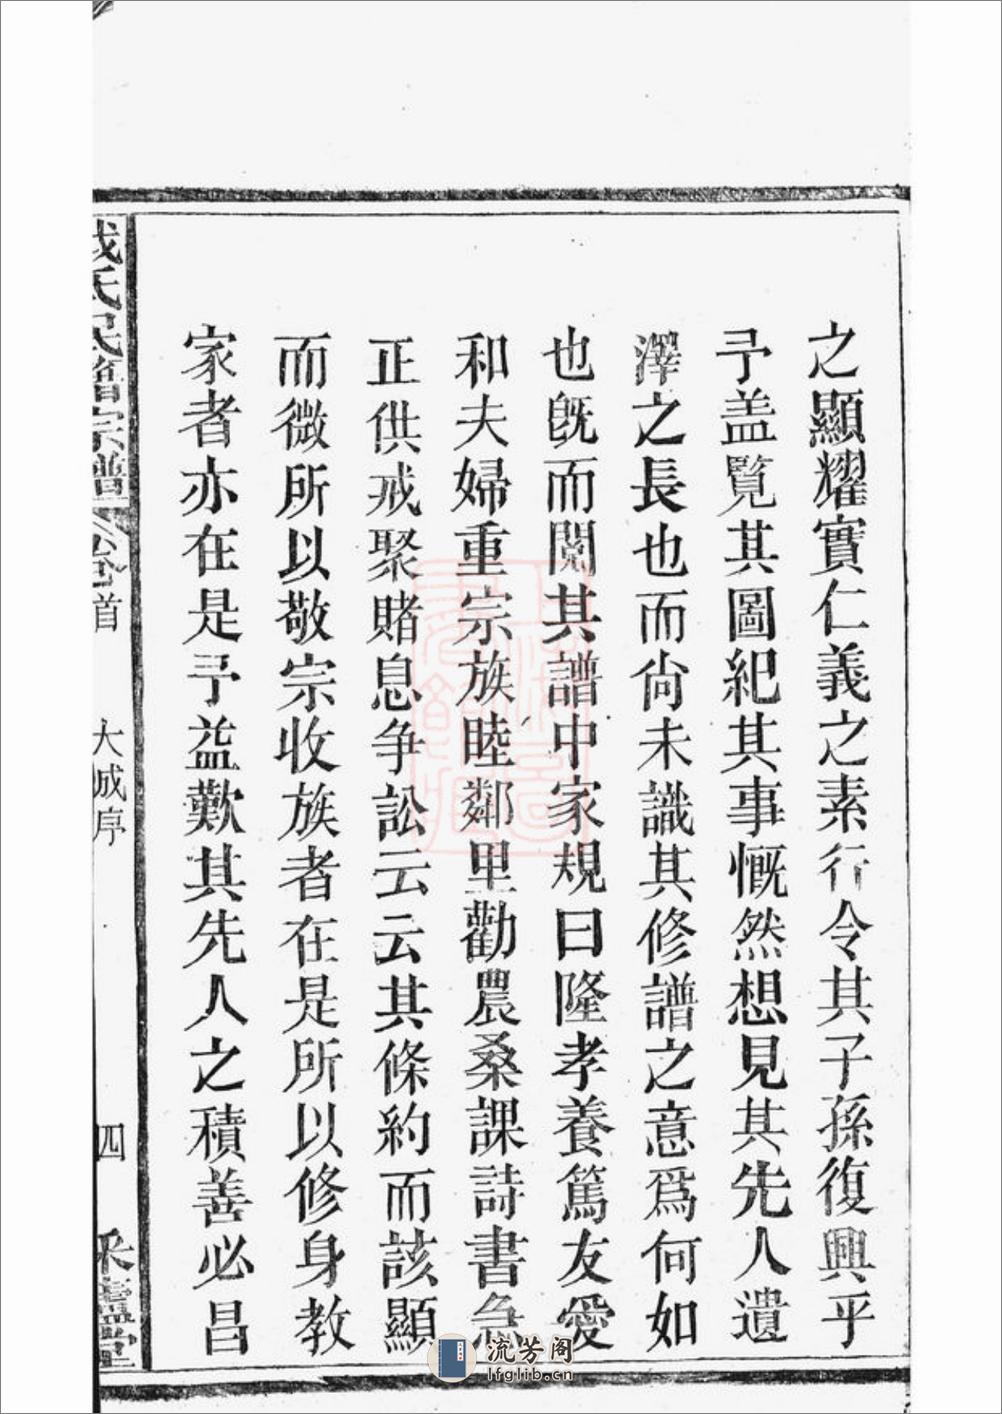 之顯耀實仁義之素行令其子孫復興乎
予盖覽其圖紀其事慨然想見其先人遺
澤之長也而尙未識其修譜之意爲何如
也旣而閱其譜中家規曰隆孝養篤友愛
和夫婦重宗族睦鄰里勸農桑課詩書急
正供戒聚賭息争訟云云其條約而該顯
而微所以敬宗收族者在是所以修身教
家者亦在是予益歎其先人之積善必昌
氏民籍宗譜
卷首
大成序
四
流芳阁
lfglib.cn